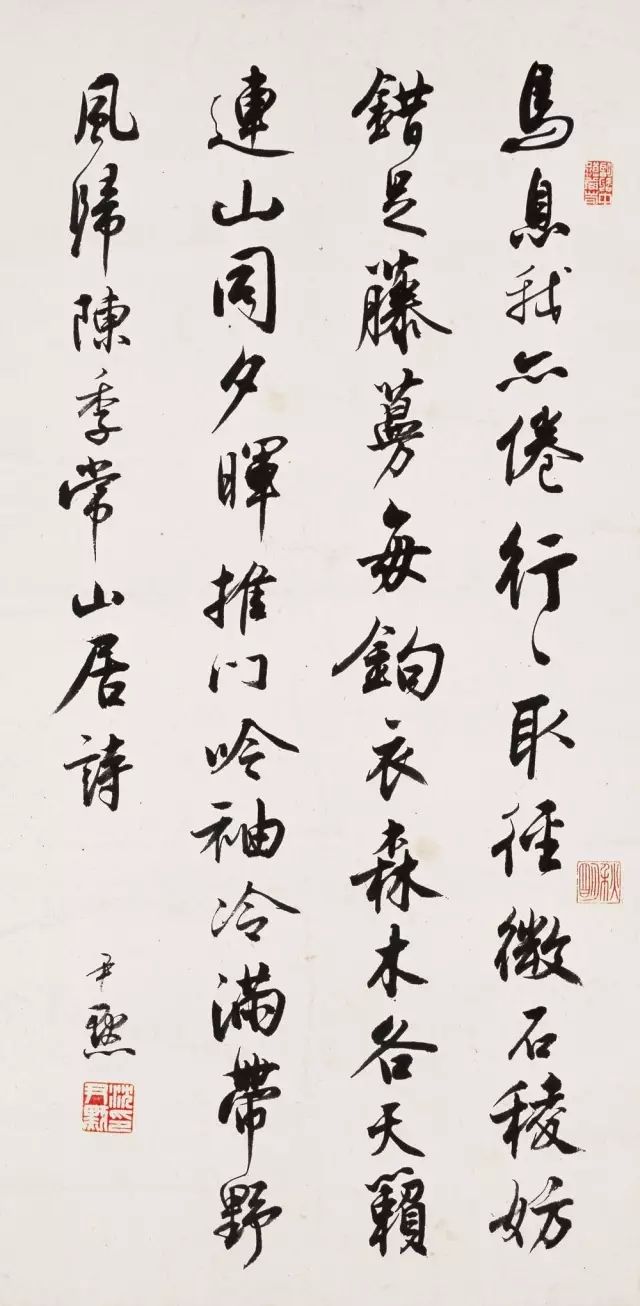 馬息我亦倦行〻取徑微石稜妨
錯足藤蔓每鉤衣森木各天籟
連山同夕暉推门吟袖冷滿帶野
風歸陳季常山居詩
尹默
沈尹默印